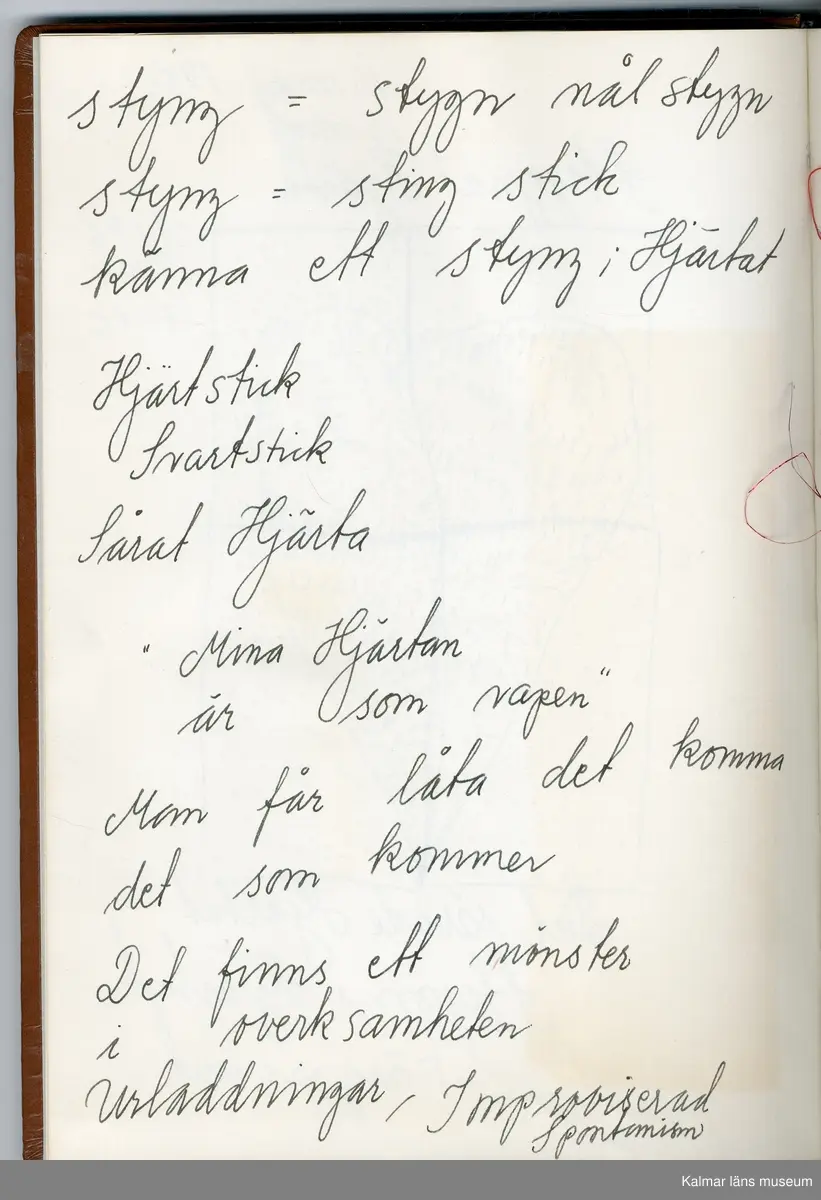 styng = stygn nål stygn
styng = sting stick
känna ett styng i Hjärtat
Hjärtstick
Svartstick
Sårat Hjärta
"Mina Hjärtan
är som vapen"
Man får låta det komma
det som kommer
Det finns ett mönster
i overksamheten
Urladdningar, Improviserad
Spontanism
Kalmar läns museum